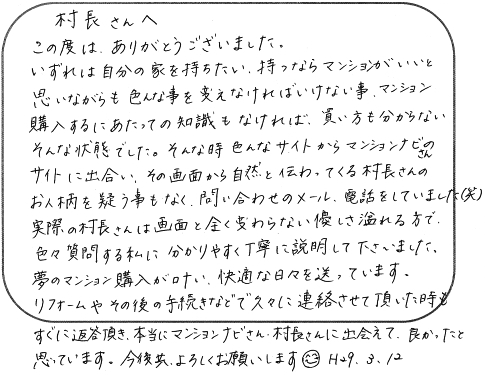 村長さんへ
この度は、ありがとうございました。
いずれは自分の家を持ちたい、持つならマンションがいいと
思いながらも色んな事を変えなければいけない事、マンション
購入するにあたっての知識もなければ、買い方も分からない
そんな状態でした。そんな時色んなサイトからマンションナビさんの
サイトに出合い、その画面から自然と伝わってくる村長さんの
お人柄を疑う事もなく、問い合わせのメール、電話をしていました(笑)
実際の村長さんは画面と全く変わらない優しさ溢れる方で、
色々質問する私に分かりやすく丁寧に説明して下さいました、
夢のマンション購入が叶い、快適な日々を送っています。
リフォームやその後の手続きなどで久々に連絡させて頂いた時も
すぐに返答頂き、本当にマンションナビさん、村長さんに出会えて、良かったと
思っています。今後共、よろしくお願いします☺ H29.3.12